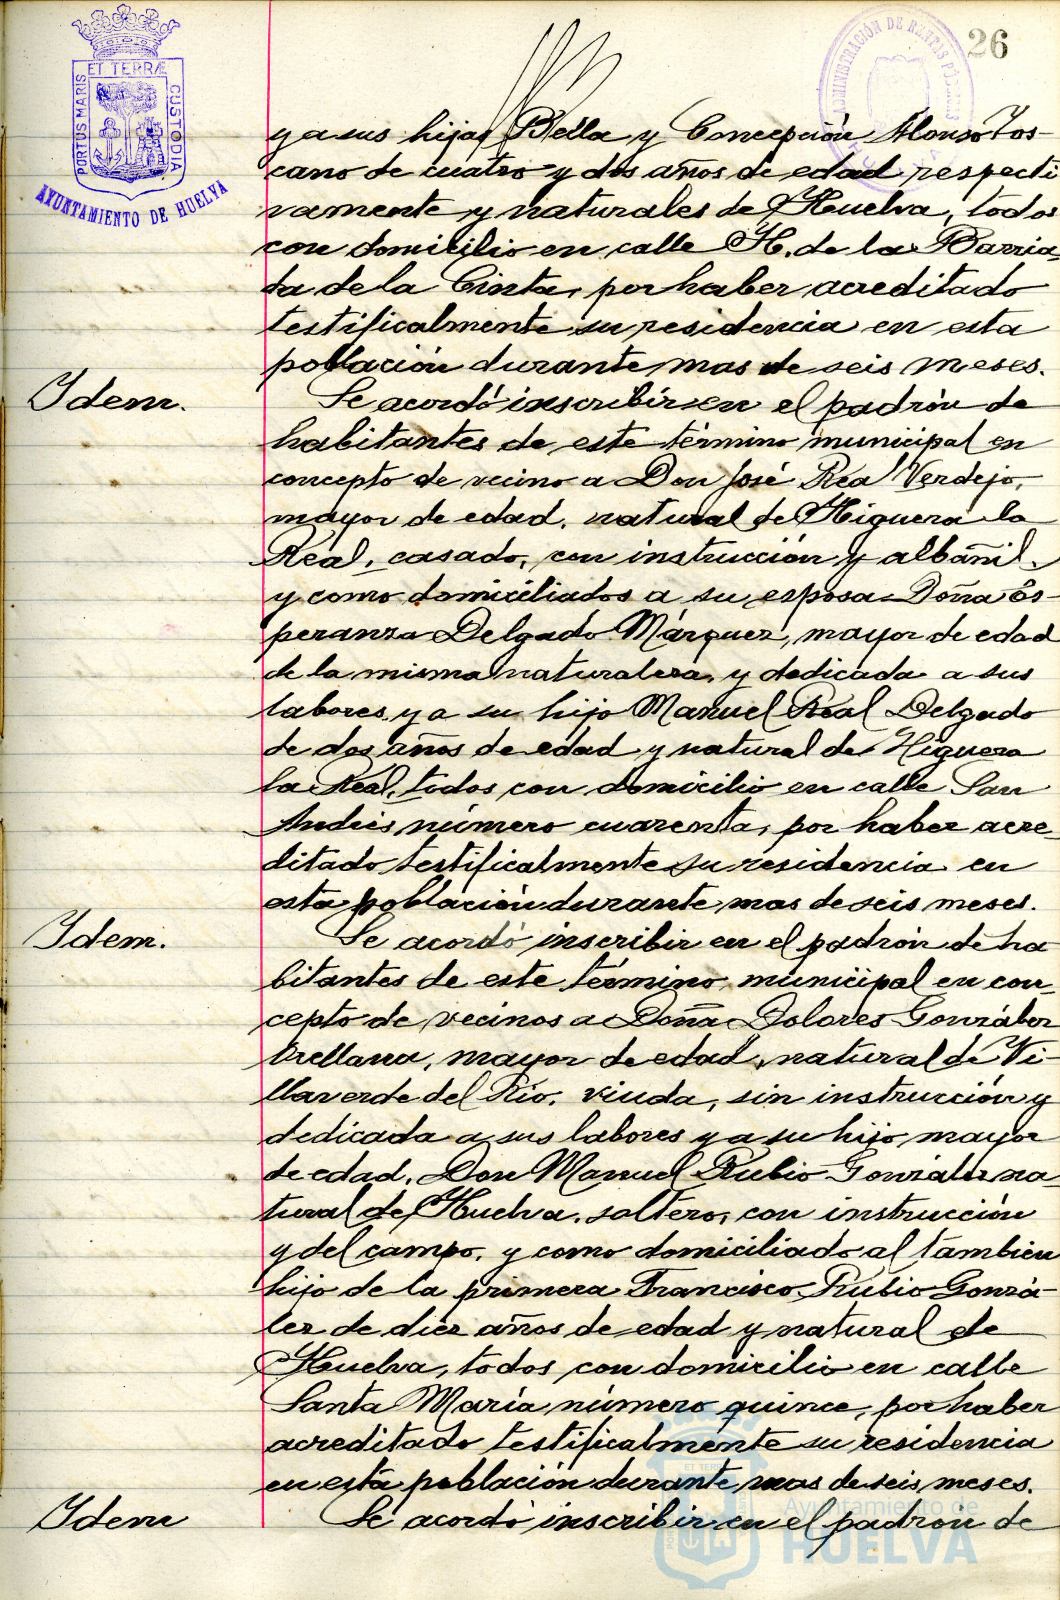 26
PORTUS MARIS
ET TERRÆ
CUSTODIA
AYUNTAMIENTO DE HUELVA
ADMINISTRACIÓN DE RENTAS PÚBLICAS
y a sus hijas Bella y Concepción Alonso Tos-
cano de cuatro y dos años de edad respecti
vamente y naturales de Huelva, todos
con domicilio en calle H. de la Barria-
da de la Cinta, por haber acreditado
testificalmente su residencia en esta
población durante mas de seis meses.
Idem. Se acordó inscribir en el padrón de
habitantes de este término municipal en
concepto de vecino a Don José Real Verdejo,
mayor de edad, natural de Higuera la
Real, casado, con instrucción y albañil,
y como domiciliados a su esposa Doña Es-
peranza Delgado Márquez, mayor de edad
de la misma naturaleza, y dedicada a sus
labores, y a su hijo Manuel Real Delgado
de dos años de edad y natural de Higuera
la Real, todos con domicilio en calle San
Andrés número cuarenta, por haber acre-
ditado testificalmente su residencia en
esta población durante mas de seis meses.
Idem. Se acordó inscribir en el padrón de ha
bitantes de este término municipal en con-
cepto de vecinos a Doña Dolores González
Orellana, mayor de edad, natural de Vi-
llaverde del Río, viuda, sin instrucción y
dedicada a sus labores y a su hijo, mayor
de edad, Don Manuel Rubio González na-
tural de Huelva, soltero, con instrucción
y del campo, y como domiciliado al tambien
hijo de la primera Francisco Rubio Gonzá-
lez de diez años de edad y natural de
Huelva, todos con domicilio en calle
Santa María número quince, por haber
acreditado testificalmente su residencia
en esta población durante mas de seis meses.
Idem Se acordó inscribir en el padrón de
Ayuntamiento de
HUELVA